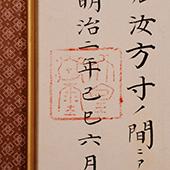 汝方寸ノ間ニア
明治二年己巳六月